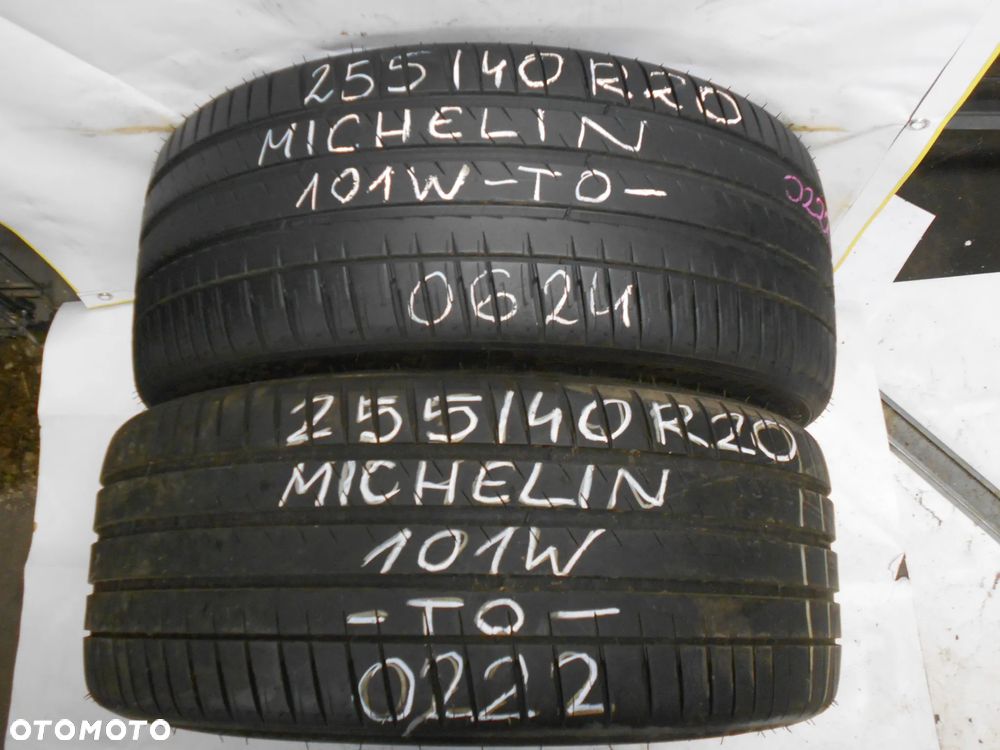 255/40 R20
MICHELIN
101W-TO-
0624
255/40 R20
MICHELIN
101W
-TO-
0222
OTOMOTO